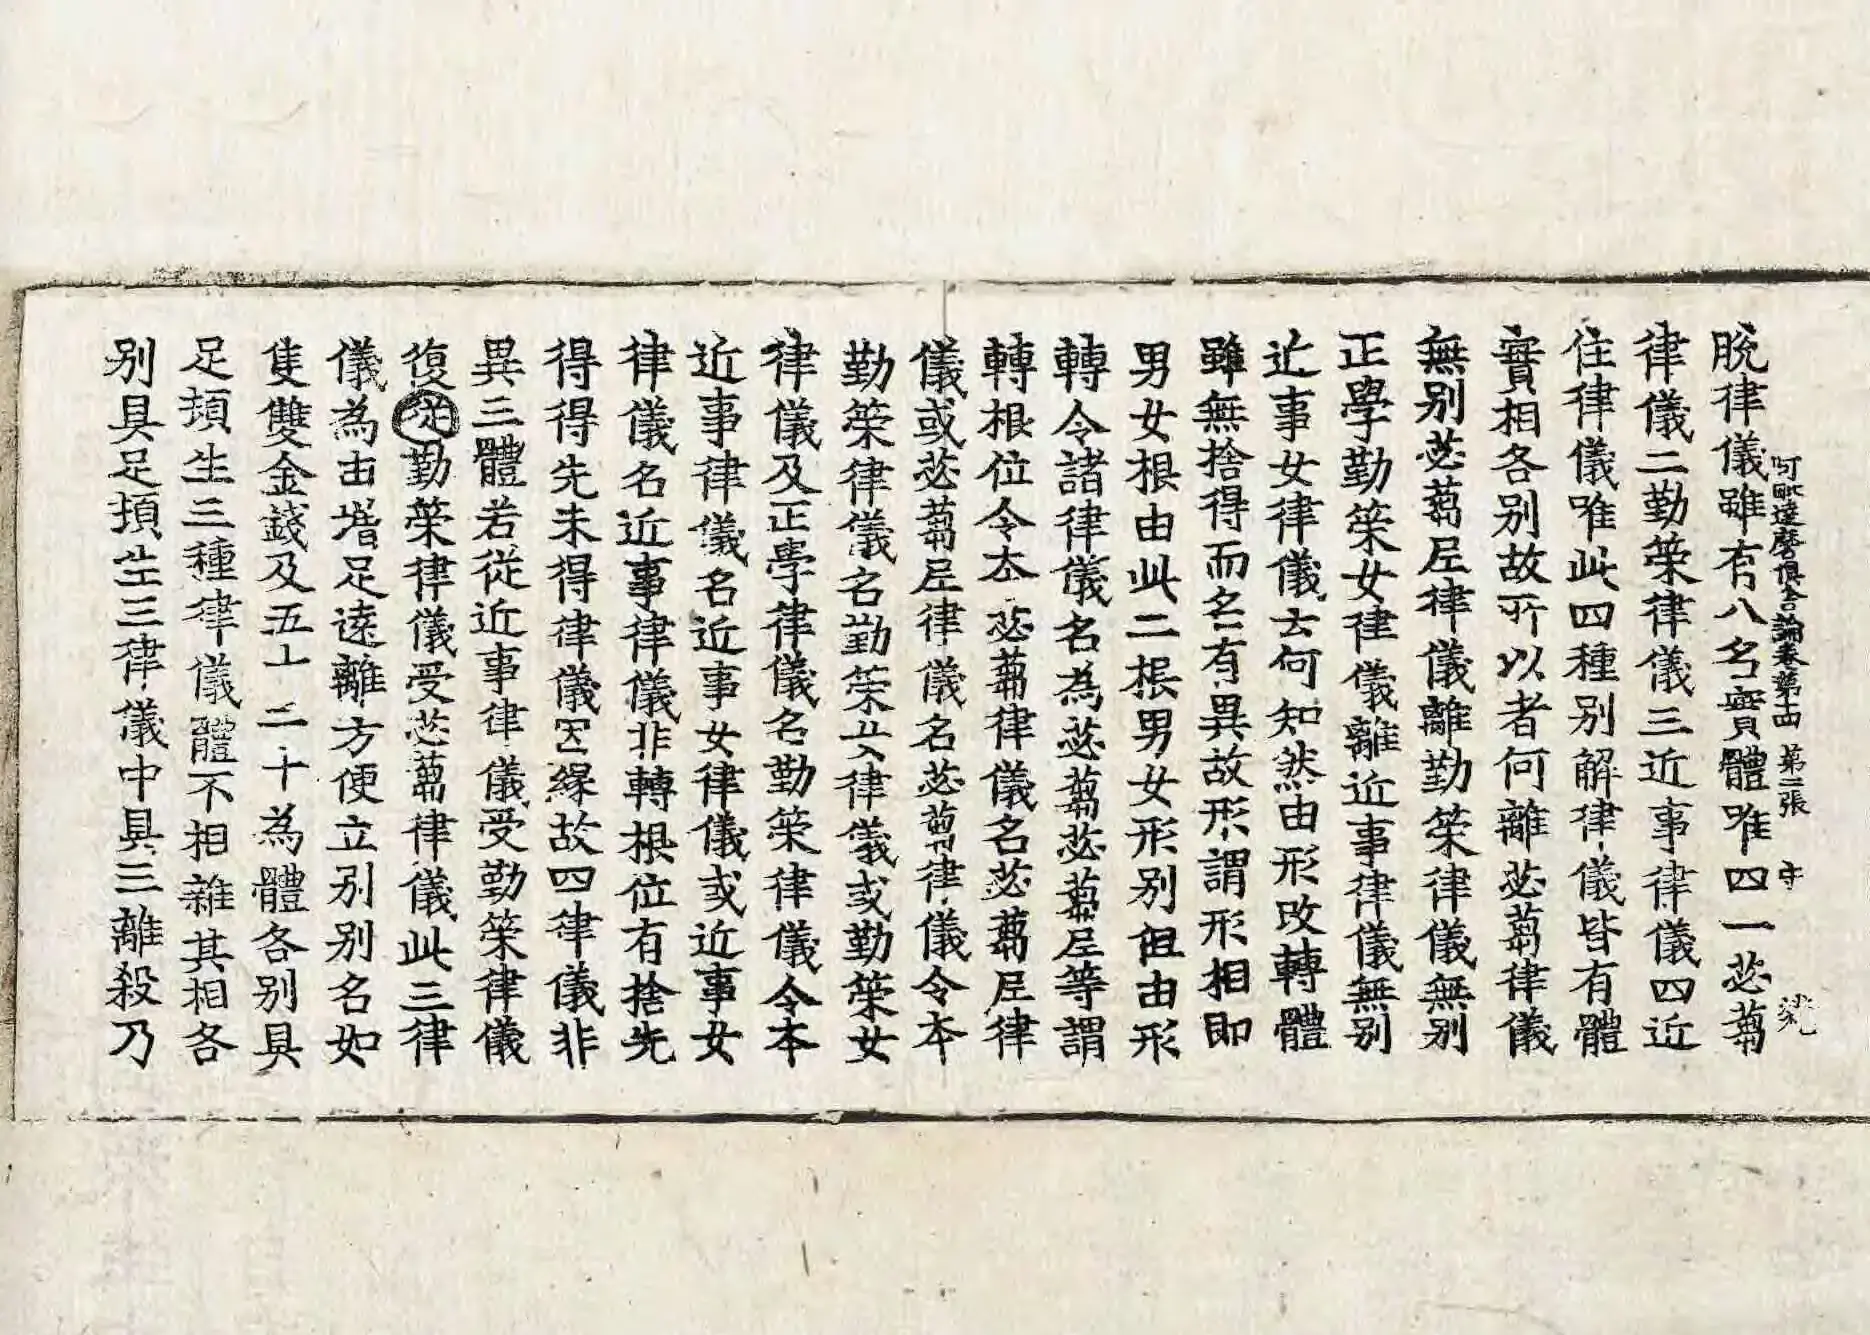 阿毗達磨俱舍論卷第十四 第三張 守
脫律儀雖有八名實體唯四一苾蒭
律儀二勤策律儀三近事律儀四近
住律儀唯此四種別解律儀皆有體
實相各別故所以者何離苾蒭律儀
無別苾蒭尼律儀離勤策律儀無別
正學勤策女律儀離近事律儀無別
近事女律儀云何知然由形改轉體
雖無捨得而名有異故形謂形相即
男女根由此二根男女形別但由形
轉令諸律儀名為苾蒭苾蒭尼等謂
轉根位令本苾蒭律儀名苾蒭尼律
儀或苾蒭尼律儀名苾蒭律儀令本
勤策律儀名勤策女律儀或勤策女
律儀及正學律儀名勤策律儀令本
近事律儀名近事女律儀或近事女
律儀名近事律儀非轉根位有捨先
得得先未得律儀因緣故四律儀非
異三體若從近事律儀受勤策律儀
復從勤策律儀受苾蒭律儀此三律
儀為由增足遠離方便立別別名如
隻雙金錢及五十二十為體各別具
足頓生三種律儀體不相雜其相各
別具足頓生三律儀中具三離殺乃